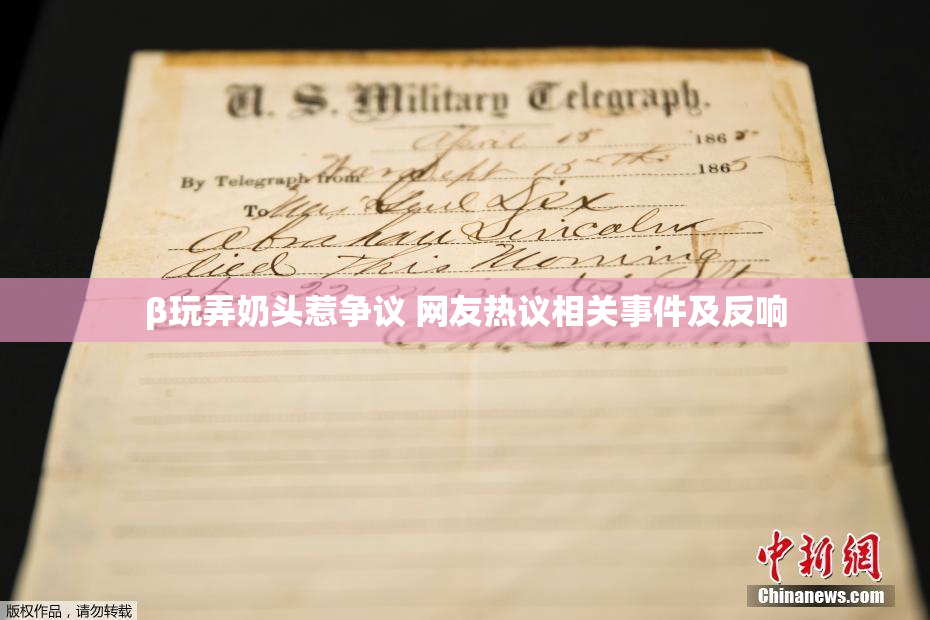 U. S. Military Telegraph.
April 15 1865
By Telegraph from War Dept 15th 1865
To Maj Genl Dix
Abraham Lincoln
died This Morning
22 minutes after
β玩弄奶头惹争议 网友热议相关事件及反响
版权作品,请勿转载
中新网
Chinanews.com